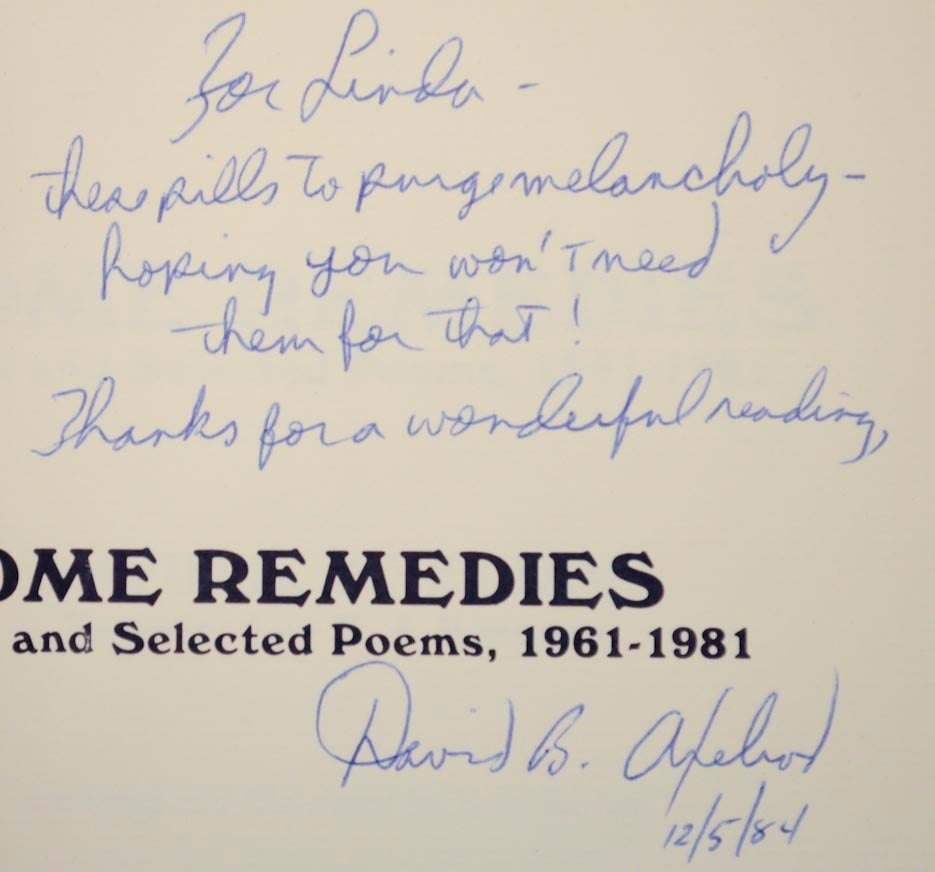 For Linda -
these pills to purge melancholy -
hoping you won't need
them for that!
Thanks for a wonderful reading,
OME REMEDIES
and Selected Poems, 1961-1981
David B. Axelrod
12/5/84